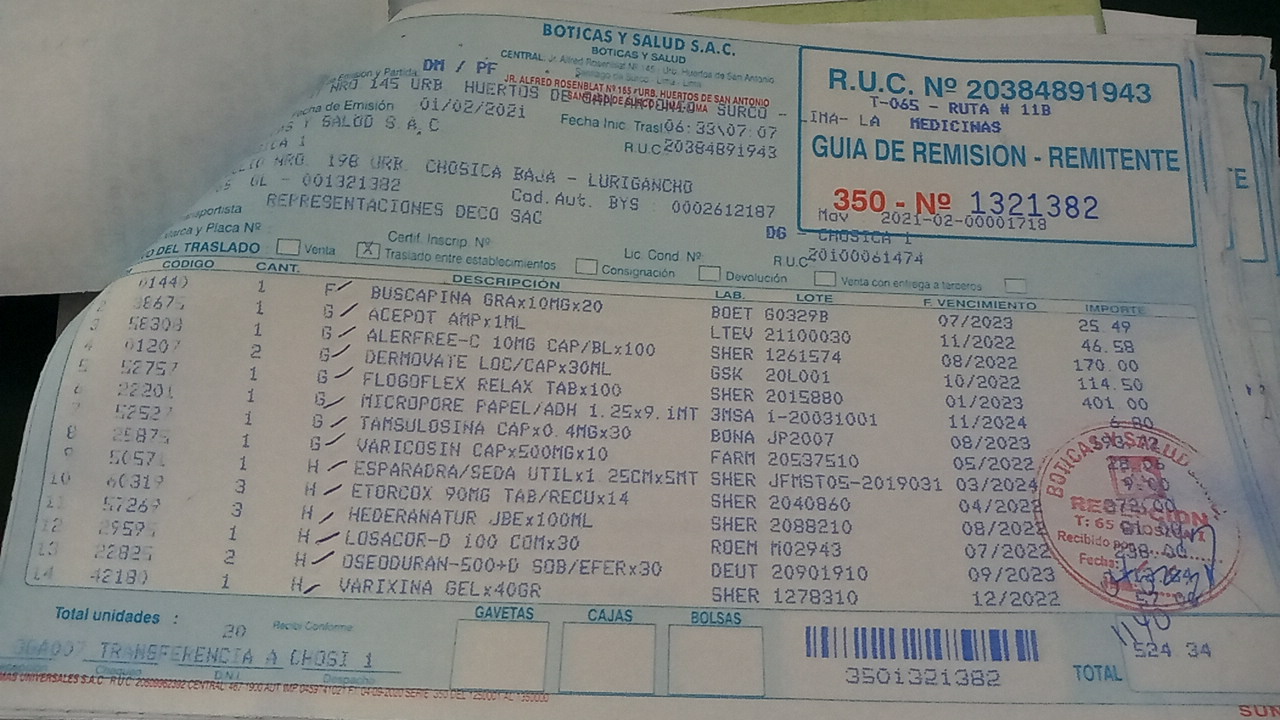 BOTICAS Y SALUD S.A.C.
BOTICAS Y SALUD
CENTRAL: Jr. Alfred Rosenblat Nº 145 - Urb. Huertos de San Antonio
Santiago de Surco - Lima - Lima
DM / PF
JR. ALFRED ROSENBLAT Nº 165 URB. HUERTOS DE SAN ANTONIO
SANTIAGO DE SURCO LIMA LIMA
NRO 145 URB HUERTOS DE SAN ANTONIO SURCO -
LIMA- LA
Fecha de Emisión 01/02/2021
Fecha Inic. Trasl 06:33\07:07
Y SALUD S.A,C
R.U.C. 20384891943
NRO. 198 URB. CHOSICA BAJA - LURIGANCHO
OL - 001321382
Cod.Aut. BYS 0002612187
REPRESENTACIONES DECO SAC
R.U.C. Nº 20384891943
T-065 - RUTA # 11B
MEDICINAS
GUIA DE REMISION - REMITENTE
350 - Nº 1321382
Mov 2021-02-00001718
DG - CHOSICA 1
R.U.C 20100061474
Marca y Placa Nº
Certif. Inscrip. Nº
Lic Cond. Nº
DEL TRASLADO
Venta
X Traslado entre establecimientos
Consignación
Devolución
Venta con entrega a terceros
CODIGO CANT. DESCRIPCIÓN LAB. LOTE F. VENCIMIENTO IMPORTE
1 F BUSCAPINA GRAx10MGx20 BOET G0329B 07/2023 25.49
2 1 G ACEPOT AMPx1ML LTEV 21100030 11/2022 46.58
3 58308 1 G ALERFREE-C 10MG CAP/BLx100 SHER 1261574 08/2022 170.00
4 01207 2 G DERMOVATE LOC/CAPx30ML GSK 20L001 10/2022 114.50
5 52757 1 G FLOGOFLEX RELAX TABx100 SHER 2015880 01/2023 401.00
22201 1 G MICROPORE PAPEL/ADH 1.25x9.1MT 3MSA i-20031001 11/2024 6.80
1 G TAMSULOSINA CAPx0.4MGx30 BONA JP2007 08/2023
8 25875 1 G VARICOSIN CAPx500MGx10 FARM 20537510 05/2022
50571 1 H ESPARADRA/SEDA UTILx1.25CMx5MT SHER JFMST05-2019031 03/2024 9.00
10 60319 3 H ETORCOX 90MG TAB/RECUx14 SHER 2040860 04/2022
57269 3 H HEDERANATUR JBEx100ML SHER 2088210 08/2022
12 29595 1 H LOSACOR-D 100 COMx30 ROEM M02943 07/2022 238.00
13 22825 2 H OSEODURAN-500+D SOB/EFERx30 DEUT 20901910 09/2023
14 42180 1 H VARIXINA GELx40GR SHER 1278310 12/2022
BOTICAS Y SALUD
RECEPCION
T: 65 CHOSICA I
Recibido por
Fecha:
Total unidades : 20
Recibí Conforme
GAVETAS CAJAS BOLSAS
TRANSFERENCIA A CHOSI 1
Chequeo D.N.I. Despacho
3501321382
TOTAL 524.34